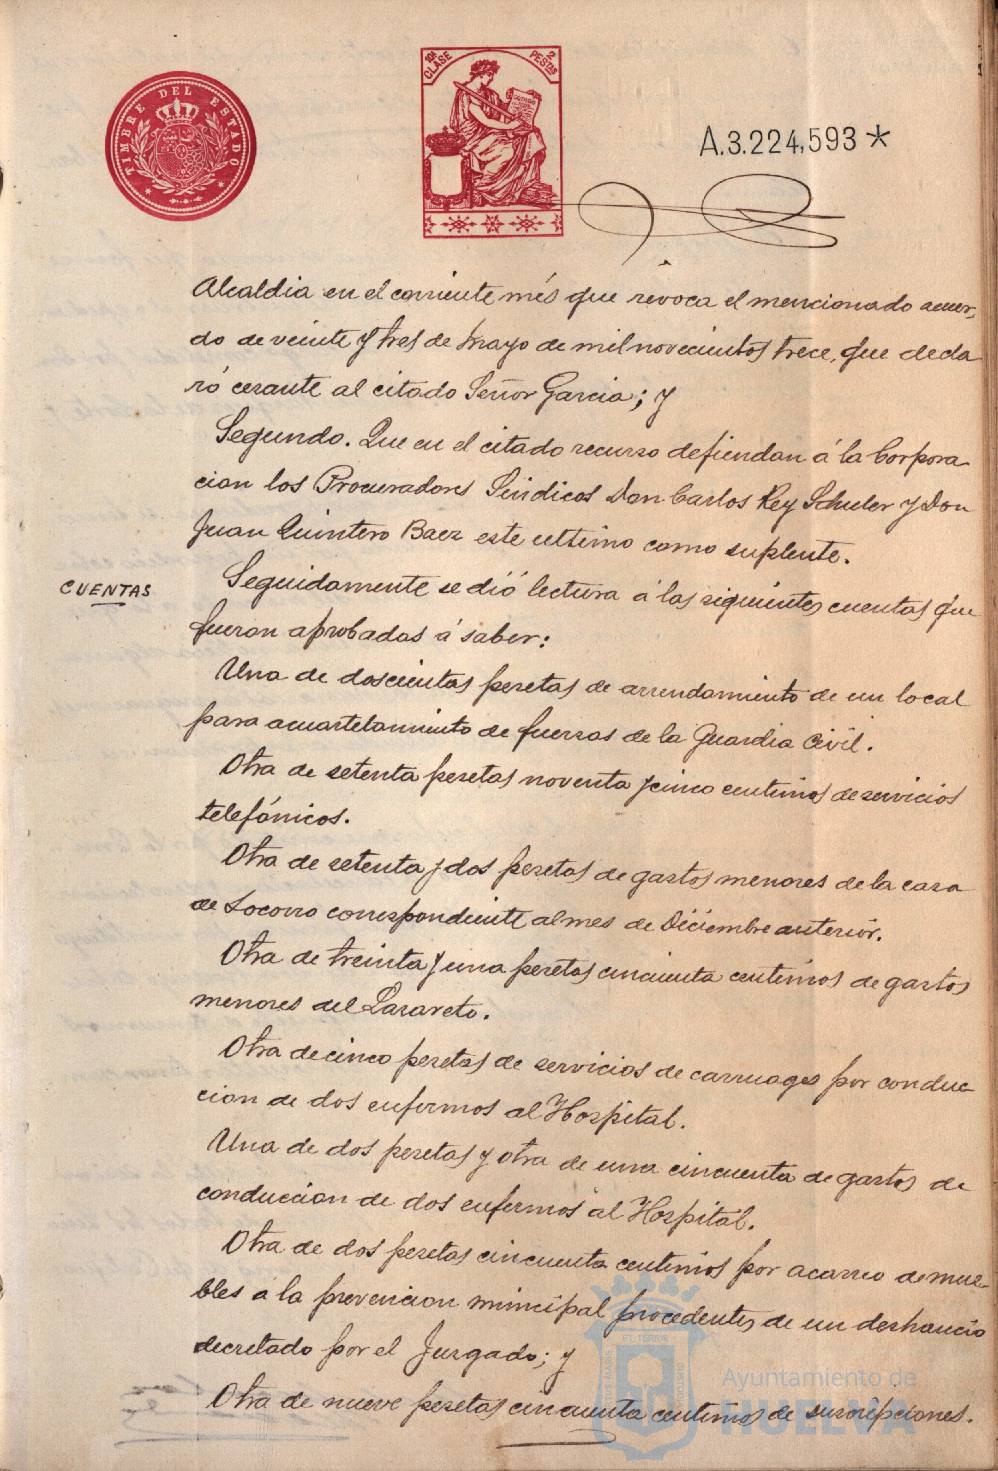 TIMBRE DEL ESTADO
10ª CLASE
2 PESTAS
A.3.224,593*
Alcaldia en el corriente més que revoca el mencionado acuer-
do de veinte y tres de Mayo de mil novecientos trece, que decla
ró cesante al citado Señor Garcia; y
Segundo. Que en el citado recurso defiendan á la Corpora-
cion los Procuradores Sindicos Don Carlos Rey Schuler y Don
Juan Quintero Baez este ultimo como suplente.
CUENTAS
Seguidamente se dió lectura á las siguientes cuentas que
fueron aprobadas á saber:
Una de doscientas pesetas de arrendamiento de un local
para acuartelamiento de fuerzas de la Guardia Civil.
Otra de setenta pesetas noventa y cinco centimos de servicios
telefónicos.
Otra de setenta y dos pesetas de gastos menores de la casa
de Socorro correspondiente al mes de Diciembre anterior.
Otra de treinta y una pesetas cincuenta centimos de gastos
menores del Lazareto.
Otra de cinco pesetas de servicios de carruages por conduc-
cion de dos enfermos al Hospital.
Una de dos pesetas y otra de una cincuenta de gastos de
conduccion de dos enfermos al Hospital.
Otra de dos pesetas cincuenta centimos por acarreo de mue-
bles a la prevencion municipal procedentes de un deshaucio
decretado por el Juzgado; y
Otra de nueve pesetas cincuenta centimos de suscripciones.
Ayuntamiento de
HUELVA